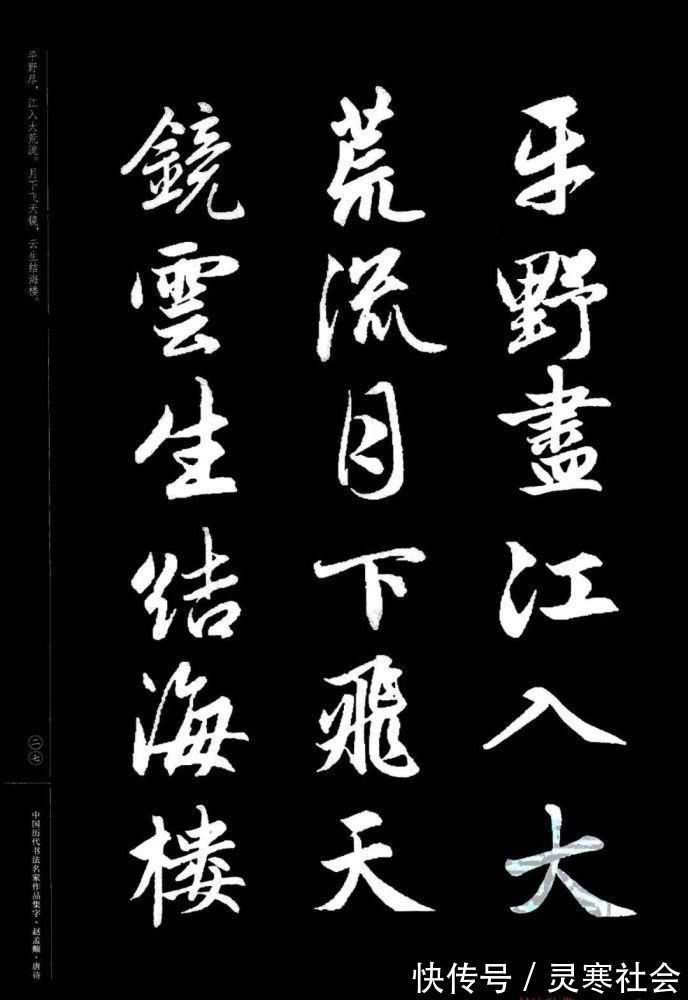 平野盡江入大
荒流月下飛天
鏡雲生結海楼
平野尽，江入大荒流。月下飞天镜，云生结海楼。
二七
中国历代书法名家作品集字·赵孟頫·唐诗
快传号／灵寒社会